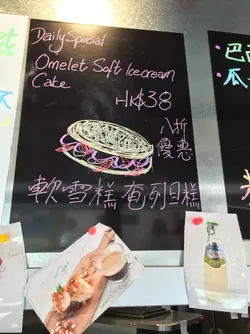 Daily Special
Omelet Soft Icecream
Cake
HK$38
八折
優惠
軟雪糕奄列旦糕
巴
瓜